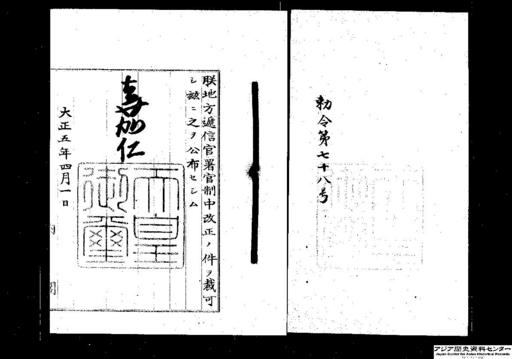 勅令第七十八号
朕地方遞信官署官制中改正ノ件ヲ裁可
シ茲ニ之ヲ公布セシム
嘉仁
天皇
御璽
大正五年四月一日
内閣
アジア歴史資料センター
Japan Center for Asian Historical Records